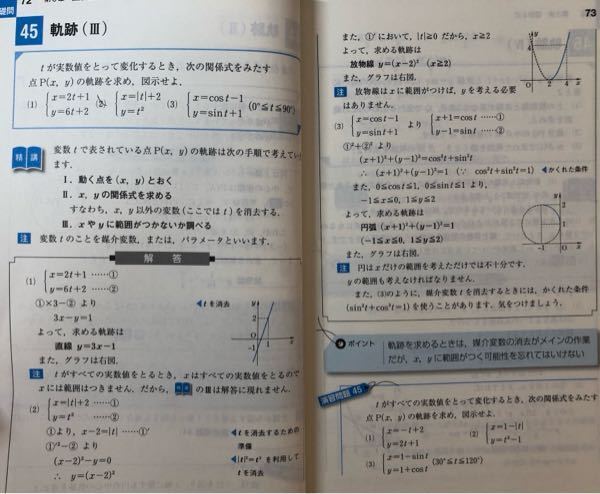 72
礎問
45 軌跡(Ⅲ)
tが実数値をとって変化するとき,次の関係式をみたす
点P(x, y)の軌跡を求め,図示せよ.
(1) {x=2t+1 (2) {x=|t|+2 (3) {x=cost-1 (0°≦t≦90°)
y=6t+2 y=t² y=sint+1
精講
変数tで表されている点P(x, y)の軌跡は次の手順で考えてい
ます.
Ⅰ.動く点を(x, y)とおく
Ⅱ.x, yの関係式を求める
すなわち,x, y以外の変数(ここではt)を消去する.
Ⅲ.xやyに範囲がつかないか調べる
注 変数tのことを媒介変数,または,パラメータといいます.
解答
(1) {x=2t+1 ……①
y=6t+2 ……②
①×3-② より
◀tを消去
3x-y=1
よって,求める軌跡は
直線 y=3x-1
また,グラフは右図.
y
O
x
-1
注 tがすべての実数値をとるとき,xはすべての実数値をとるので
xには範囲はつきません.だから,精講のⅢは解答に現れません.
(2) {x=|t|+2 ……①
y=t² ……②
①より,x-2=|t| ……①′
①′²-② より
(x-2)²-y=0
∴ y=(x-2)²
◀tを消去するための
準備
◀|t|²=t²を利用して
tを消去
73
また,①′において,|t|≧0 だから,x≧2
よって,求める軌跡は
放物線 y=(x-2)² (x≧2)
また,グラフは右図.
4
O
2
4
x
注 放物線はxに範囲がつけば,yを考える必要
はありません.
(3) {x=cost-1 より {x+1=cost ……①
y=sint+1 y-1=sint ……②
①²+②² より
(x+1)²+(y-1)²=cos²t+sin²t
∴ (x+1)²+(y-1)²=1 (∵ cos²t+sin²t=1)
◀かくれた条件
また,0≦cost≦1, 0≦sint≦1 より,
-1≦x≦0, 1≦y≦2
よって,求める軌跡は
円弧(x+1)²+(y-1)²=1
(-1≦x≦0, 1≦y≦2)
また,グラフは右図.
1
-1
O
x
注 円はxだけの範囲を考えただけでは不十分です.
yの範囲も考えなければなりません.
また,(3)のように,媒介変数tを消去するときには,かくれた条件
(sin²t+cos²t=1)を使うことがあります.気をつけましょう.
ポイント
軌跡を求めるときは,媒介変数の消去がメインの作業
だが,x, yに範囲がつく可能性を忘れてはいけない
演習問題 45
tがすべての実数値をとって変化するとき,次の関係式をみたす
点P(x, y)の軌跡を求め,図示せよ.
(1) {x=-t+2 (2) {x=1-|t|
y=2t+1 y=t²-1
(3) {x=1-sint (30°≦t≦120°)
y=1+cost